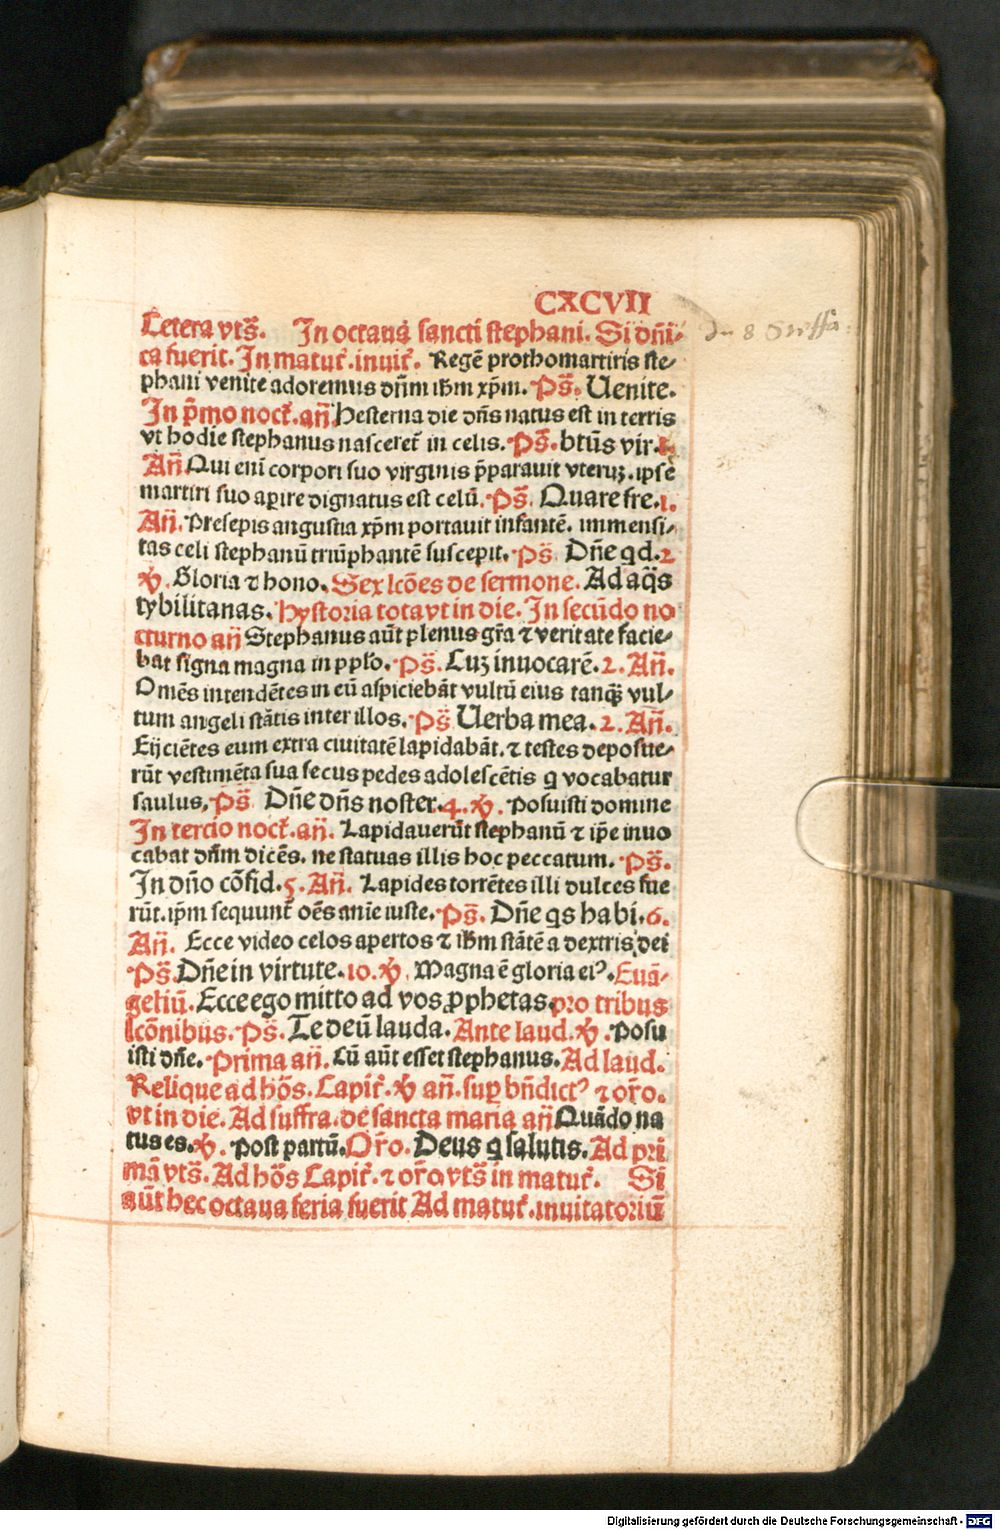 CXCVII
Cetera vts̄. In octaua sancti stephani. Si dñi-
ca fuerit. In matut̄. inuit̄. Regē prothomartiris ste-
phani venite adoremus dñm ihm xp̄m. Ps̄. Uenite.
In p̄mo noct̄. añ. Hesterna die dñs natus est in terris
vt hodie stephanus nasceret̄ in celis. Ps̄. btūs vir. 1.
Añ. Qui eni corpori suo virginis p̄parauit vteruꝫ. ipse
martiri suo aꝑire dignatus est celū. Ps̄. Quare fre. 1.
Añ. Presepis angustia xp̄m portauit infantē. immensi-
tas celi stephanū triūphantē suscepit. Ps̄ Dñe qd. 2
℣. Gloria ⁊ hono. Sex lcōes de sermone. Ad aq̄s
tybilitanas. Hystoria tota vt in die. In secūdo no
cturno añ Stephanus aūt plenus gr̄a ⁊ veritate facie-
bat signa magna in pplo. Ps̄. Cuꝫ inuocarē. 2. Añ.
Omēs intendētes in eū aspiciebāt vultū eius tanqꝫ vul-
tum angeli stātis inter illos. Ps̄ Uerba mea. 2. Añ.
Eijciētes eum extra ciuitatē lapidabāt. ⁊ testes deposue-
rūt vestimēta sua secus pedes adolescētis q vocabatur
saulus. Ps̄ Dñe dñs noster. 4. ℣. Posuisti domine
In tercio noct̄. añ. Lapidauerūt stephanū ⁊ ip̄e inuo
cabat dñm dicēs. ne statuas illis hoc peccatum. Ps̄.
In dño cōfid. 5. Añ. Lapides torrētes illi dulces fue
rūt. ip̄m sequunt̄ oēs anīe iuste. Ps̄. Dñe qs habi. 6.
Añ. Ecce video celos apertos ⁊ ihm stātē a dextris dei
Ps̄. Dñe in virtute. 10. ℣. Magna ē gloria eiꝰ. Euā-
geliū. Ecce ego mitto ad vos ꝓphetas. pro tribus
lcōnibus. Ps̄. Te deū lauda. Ante laud. ℣. Posu
isti dñe. Prima añ. Cū aūt esset stephanus. Ad laud.
Relique ad hōs. Capit̄. ℣ añ. suꝑ bñdictꝰ ⁊ or̄o.
vt in die. Ad suffra. de sancta maria añ Quādo na
tus es. ℣. Post partū. Or̄o. Deus q salutis. Ad pri
mā vts̄. Ad hōs Capit̄. ⁊ or̄o vts̄ in matut̄. Si
aūt hec octaua feria fuerit Ad matut̄. inuitatoriū
Digitalisierung gefördert durch die Deutsche Forschungsgemeinschaft - DFG